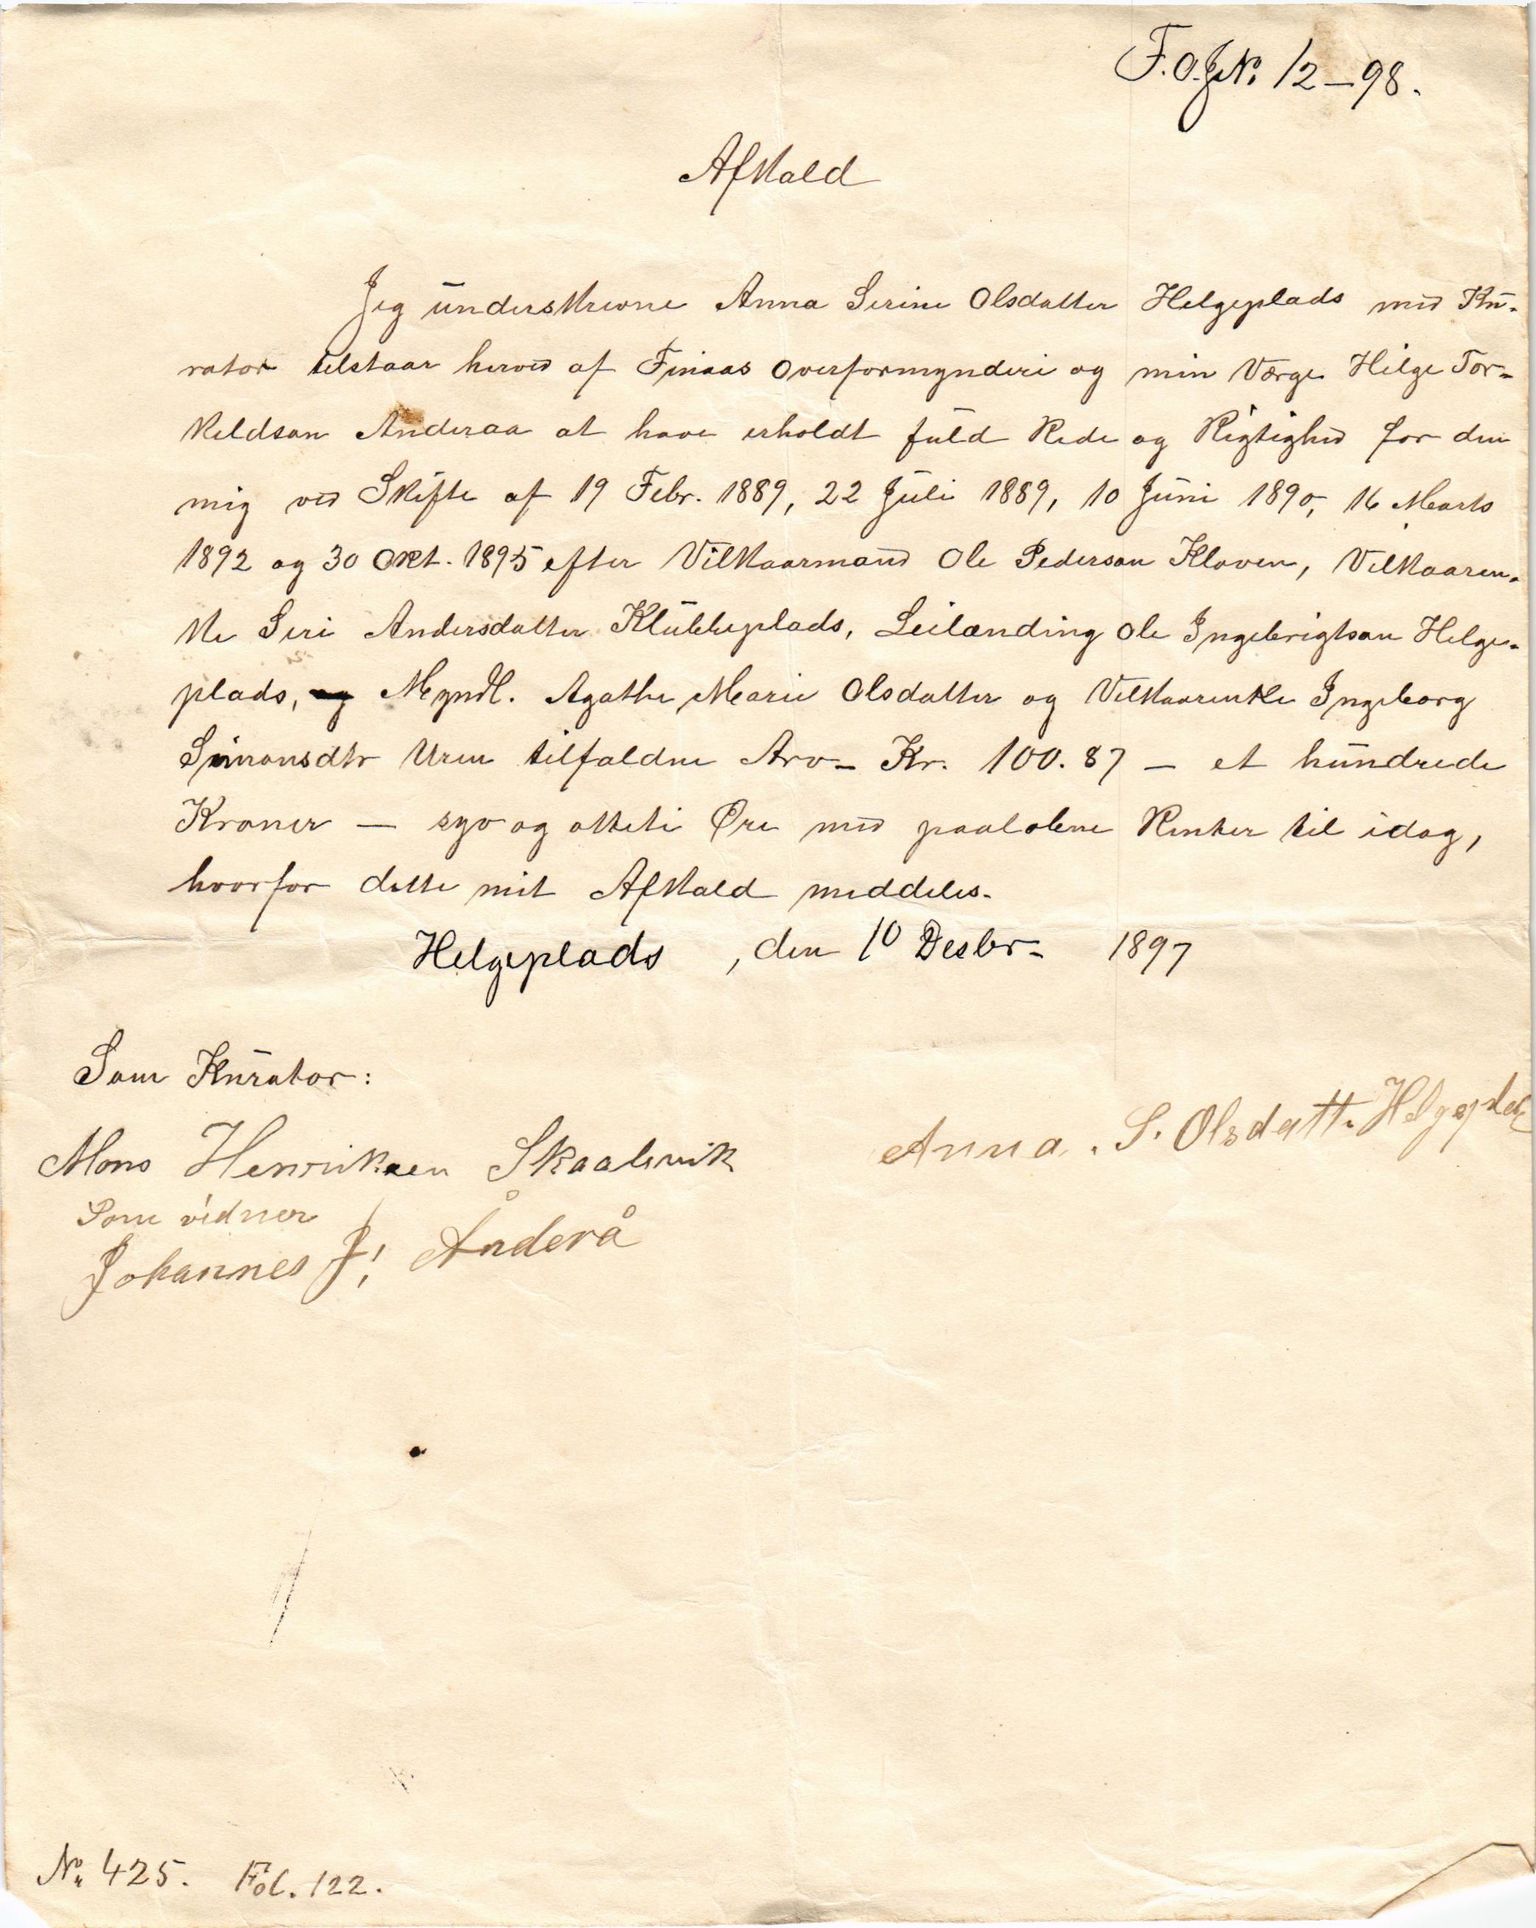 F.O.J.N. 12–98.
Afkald
Jeg underskrevne Anna Serine Olsdatter Helgeplads med Ku-
rator tilstaar herved af Finaas Overformynderi og min Værge Helge Tor-
keldson Anderaa at have erholdt fuld Rede og Rigtighed for den
mig ved Skifte af 19 Febr. 1889, 22 Juli 1889, 10 Juni 1890, 16 Marts
1892 og 30 Okt. 1895 efter Vilkaarmand Ole Pederson Kloven, Vilkaaren-
ke Siri Andersdatter Klubbeplads, Leilænding Ole Ingebrigtson Helge-
plads, og Myndl. Agathe Marie Olsdatter og Vilkaarenke Ingeborg
Simonsdtr Uren tilfaldne Arv – Kr. 100.87 – et hundrede
Kroner — syv og otteti Øre med paaløbne Renter til idag,
hvorfor dette mit Afkald meddeles.
Helgeplads, den 10 Desbr- 1897
Som Kurator:
Mons Henriksen Skaalevik
Anna. S. Olsdatt. Helgeplds
Som vidner
Johannes J. Anderå
No 425. Fol. 122.